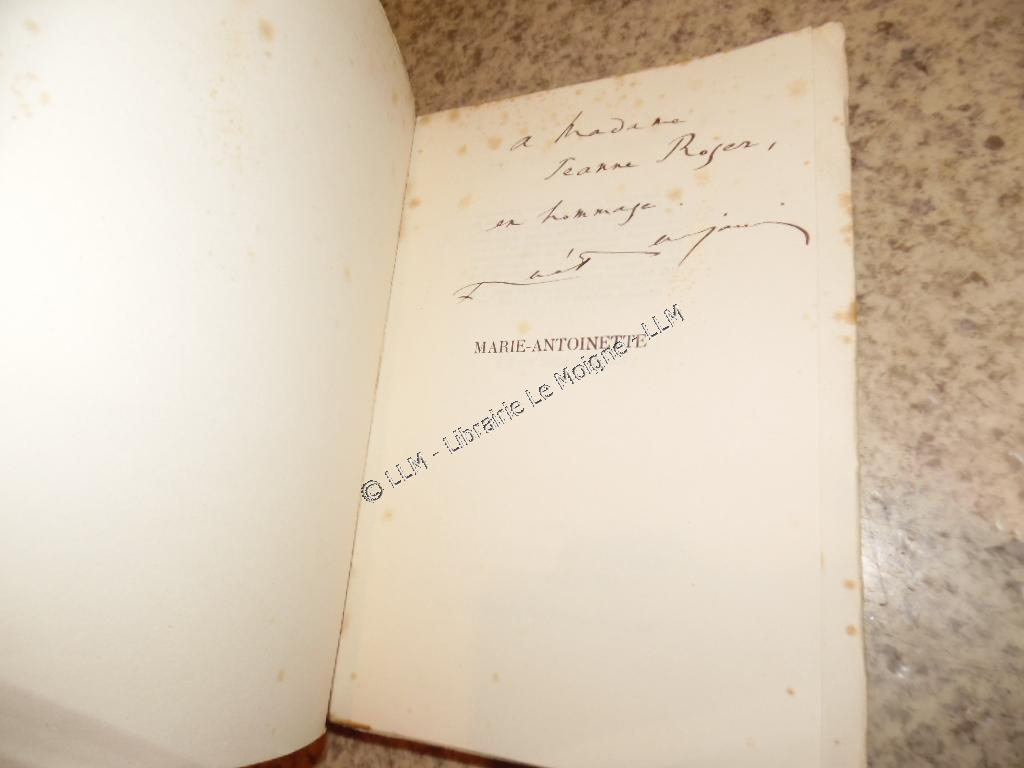 a Madame
Jeanne Roger,
en hommage.
MARIE-ANTOINETTE
© LLM - Librairie Le Moigne - LLM